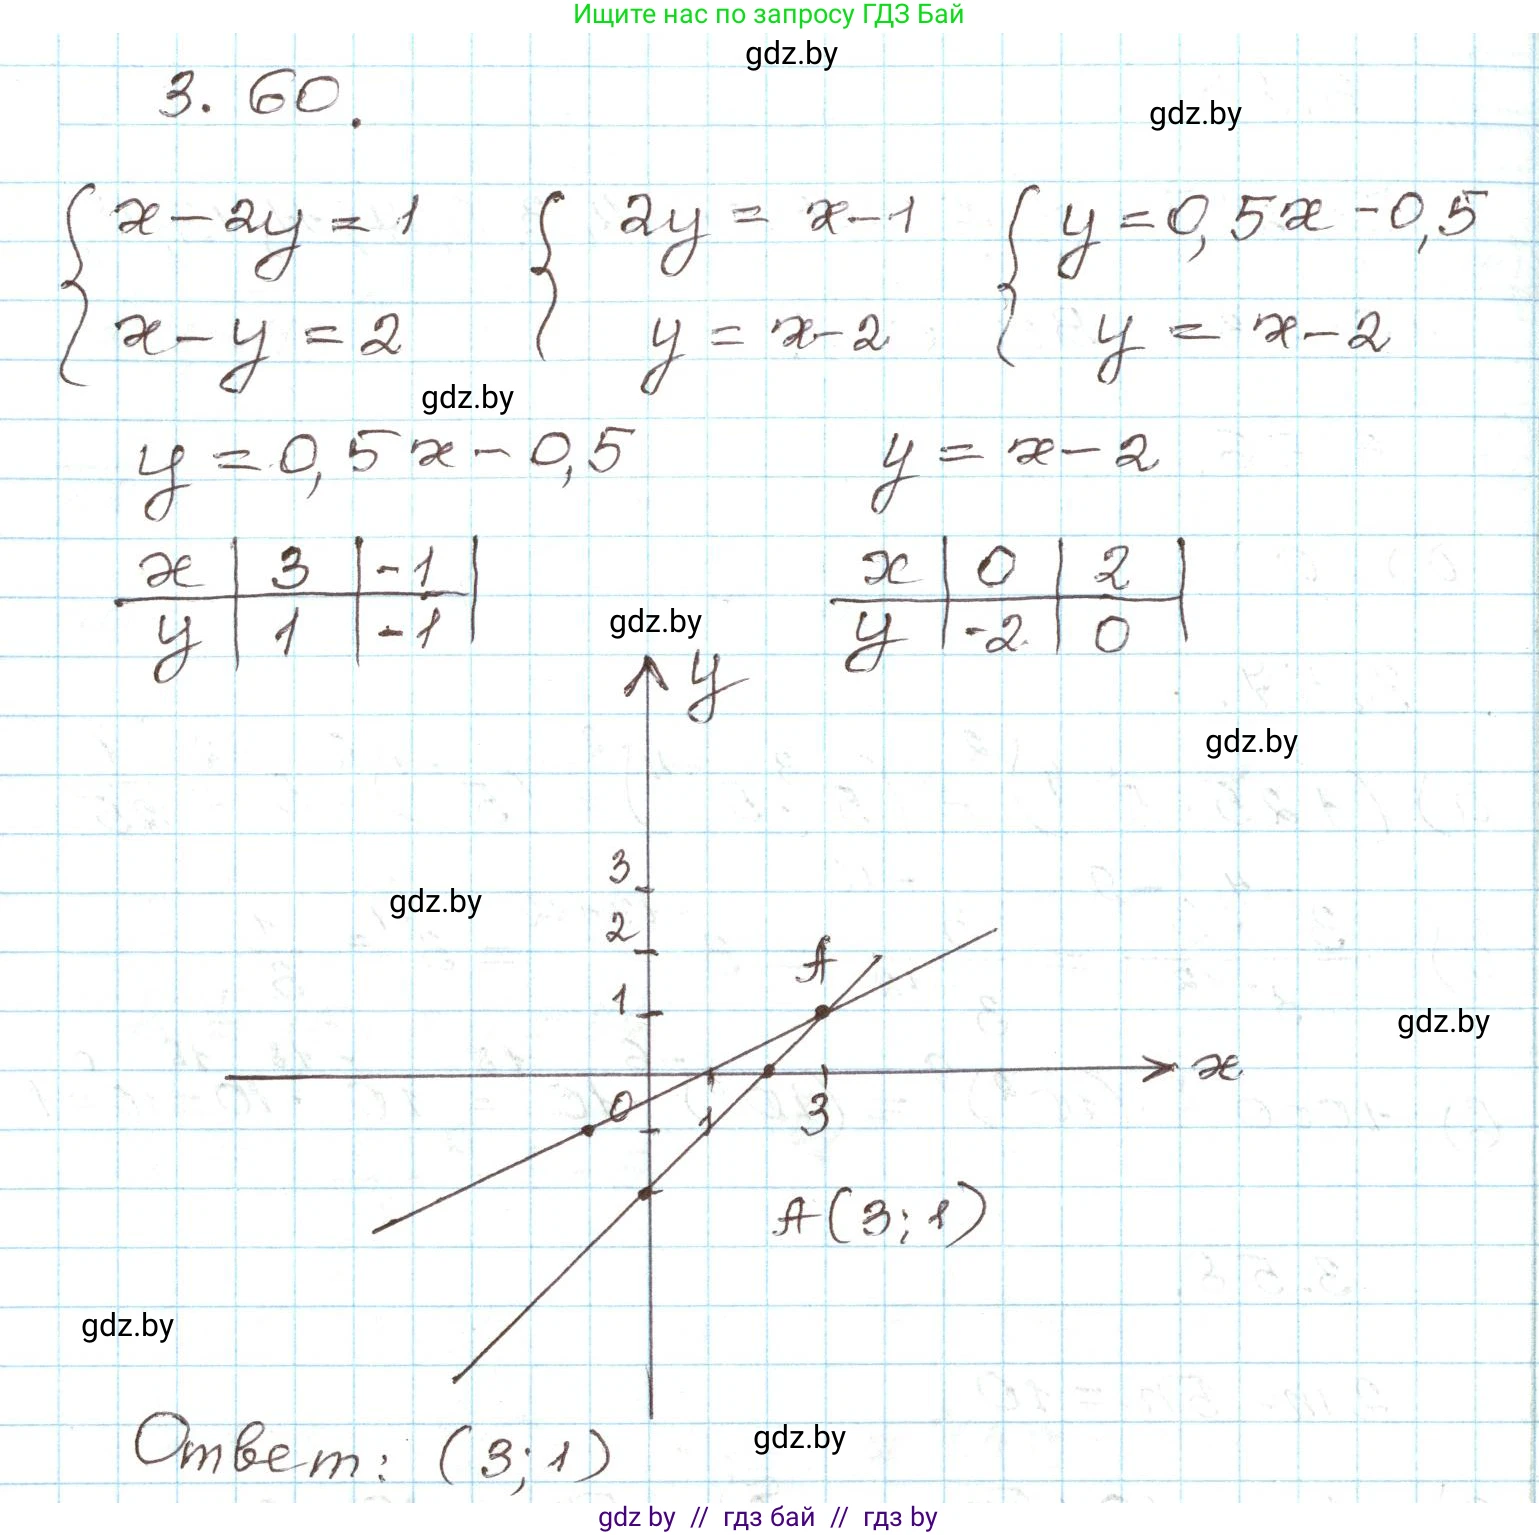 Ищите нас по запросу ГДЗ Бай
gdz.by
3. 60.
gdz.by
{ x - 2y = 1 { 2y = x - 1 { y = 0,5x - 0,5
x - y = 2 y = x - 2 y = x - 2
gdz.by
y = 0,5x - 0,5 y = x - 2
x | 3 | -1 | x | 0 | 2 |
y | 1 | -1 y | -2 | 0
gdz.by
y
gdz.by
3
gdz.by
2
A
1
gdz.by
x
0 1 3
A(3; 1)
gdz.by
Ответ: (3; 1)
gdz.by
gdz by // гдз бай // гдз by